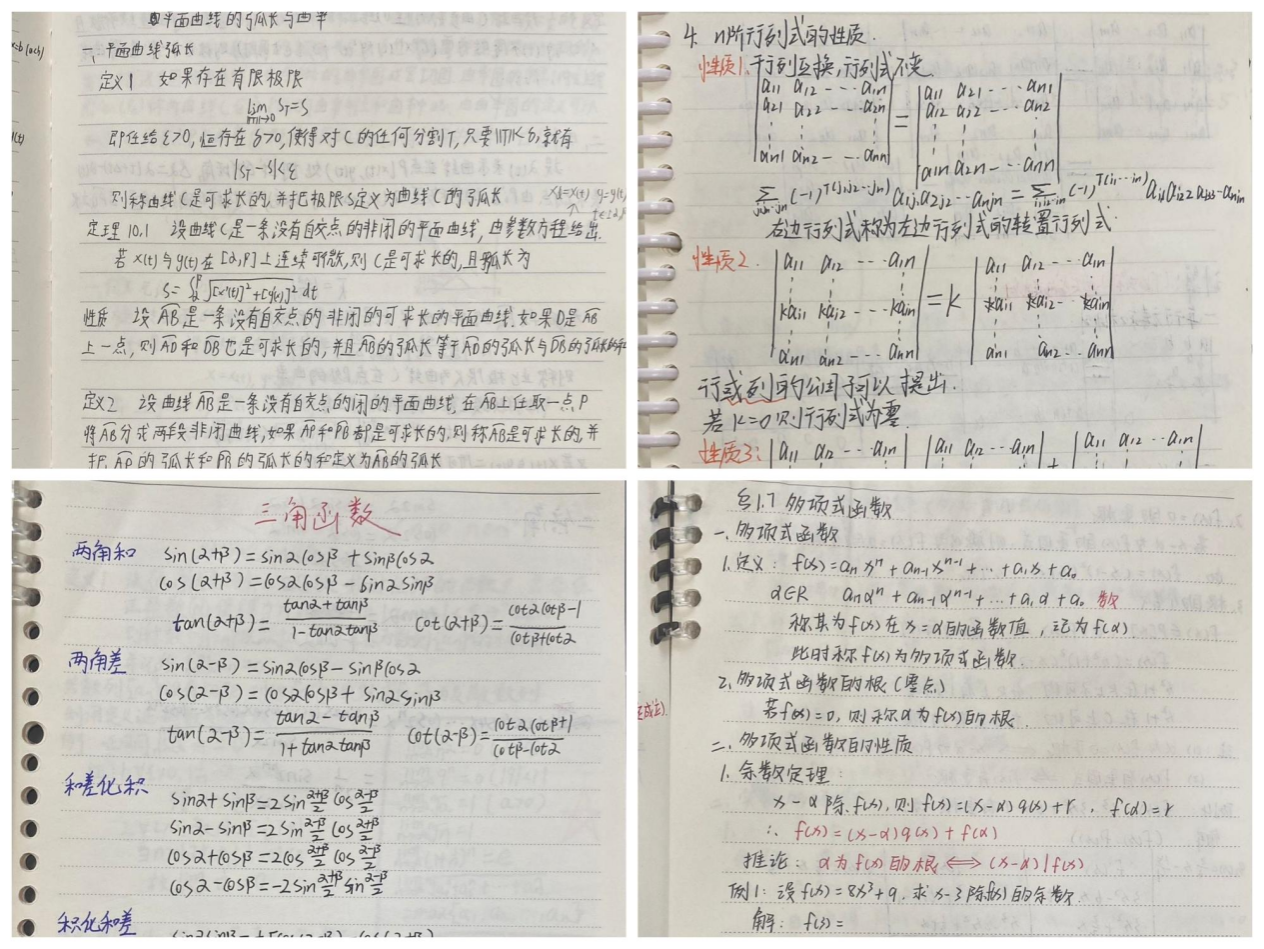 平面曲线的弧长与曲率
一、平面曲线弧长
定义1 如果存在有限极限
lim sT=s
||T||→0
即任给ε>0,恒存在δ>0,使得对C的任何分割T,只要||T||<δ,就有
|sT-s|<ε
则称曲线C是可求长的,并把极限s定义为曲线C的弧长
定理10.1 设曲线C是一条没有自交点的非闭的平面曲线,由参数方程给出
若x(t)与y(t)在[α,β]上连续可微,则C是可求长的,且弧长为
S=∫αβ √[x'(t)]²+[y'(t)]² dt
性质 设AB是一条没有自交点的非闭的可求长的平面曲线.如果D是AB
上一点,则AD和DB也是可求长的,并且AB的弧长等于AD的弧长与DB的弧长的和
定义2 设曲线AB是一条没有自交点的闭的平面曲线.在AB上任取一点P
将AB分成两段非闭曲线,如果AP和PB都是可求长的,则称AB是可求长的,并
把AP的弧长和PB的弧长的和定义为AB的弧长
4. n阶行列式的性质.
性质1.于行列互换,行列式不变
|a11 a12 --- a1n| |a11 a21 --- an1|
|a21 a22 --- a2n| = |a12 a22 --- an2|
|an1 an2 --- ann| |a1n a2n --- ann|
Σ (-1)^T(j1j2-jn) a1j1a2j2--anjn = Σ (-1)^T(i1--in) ai11ai22ai33-ainn
右边行列式称为左边行列式的转置行列式
性质2. |a11 a12 --- a1n| |a11 a12 --- a1n|
|kai1 kai2 --- kain| =k |ai1 ai2 --- ain|
|an1 an2 --- ann| |an1 an2 --- ann|
行或列的公因子可以提出.
若k=0则行列式为零.
性质3: |a11 a12 --- a1n| |a11 a12 --- a1n| + |a11 a12 --- a1n|
三角函数
两角和 sin(α+β)=sinαcosβ+sinβcosα
cos(α+β)=cosαcosβ-sinαsinβ
tan(α+β)=tanα+tanβ/1-tanαtanβ cot(α+β)=cotαcotβ-1/cotβ+cotα
两角差 sin(α-β)=sinαcosβ-sinβcosα
cos(α-β)=cosαcosβ+sinαsinβ
tan(α-β)=tanα-tanβ/1+tanαtanβ cot(α-β)=cotαcotβ+1/cotβ-cotα
和差化积 sinα+sinβ=2sin α+β/2 cos α-β/2
sinα-sinβ=2sin α-β/2 cos α+β/2
cosα+cosβ=2cos α+β/2 cos α-β/2
cosα-cosβ=-2sin α+β/2 sin α-β/2
积化和差
§1.7 多项式函数
一、多项式函数
1.定义: f(x)=anxⁿ+an-1xⁿ⁻¹+…+a1x+a0
α∈R anαⁿ+an-1αⁿ⁻¹+…+a1α+a0 数
称其为f(x)在x=α的函数值,记为f(α)
此时称f(x)为多项式函数
2.多项式函数的根(零点)
若f(α)=0,则称α为f(x)的根.
二、多项式函数的性质
1.余数定理:
x-α除f(x),则f(x)=(x-α)q(x)+r, f(α)=r
∴ f(x)=(x-α)q(x)+f(α)
推论: α为f(x)的根⟺(x-α)|f(x)
例1:设f(x)=8x³+9,求x-3除f(x)的余数
解: f(3)=